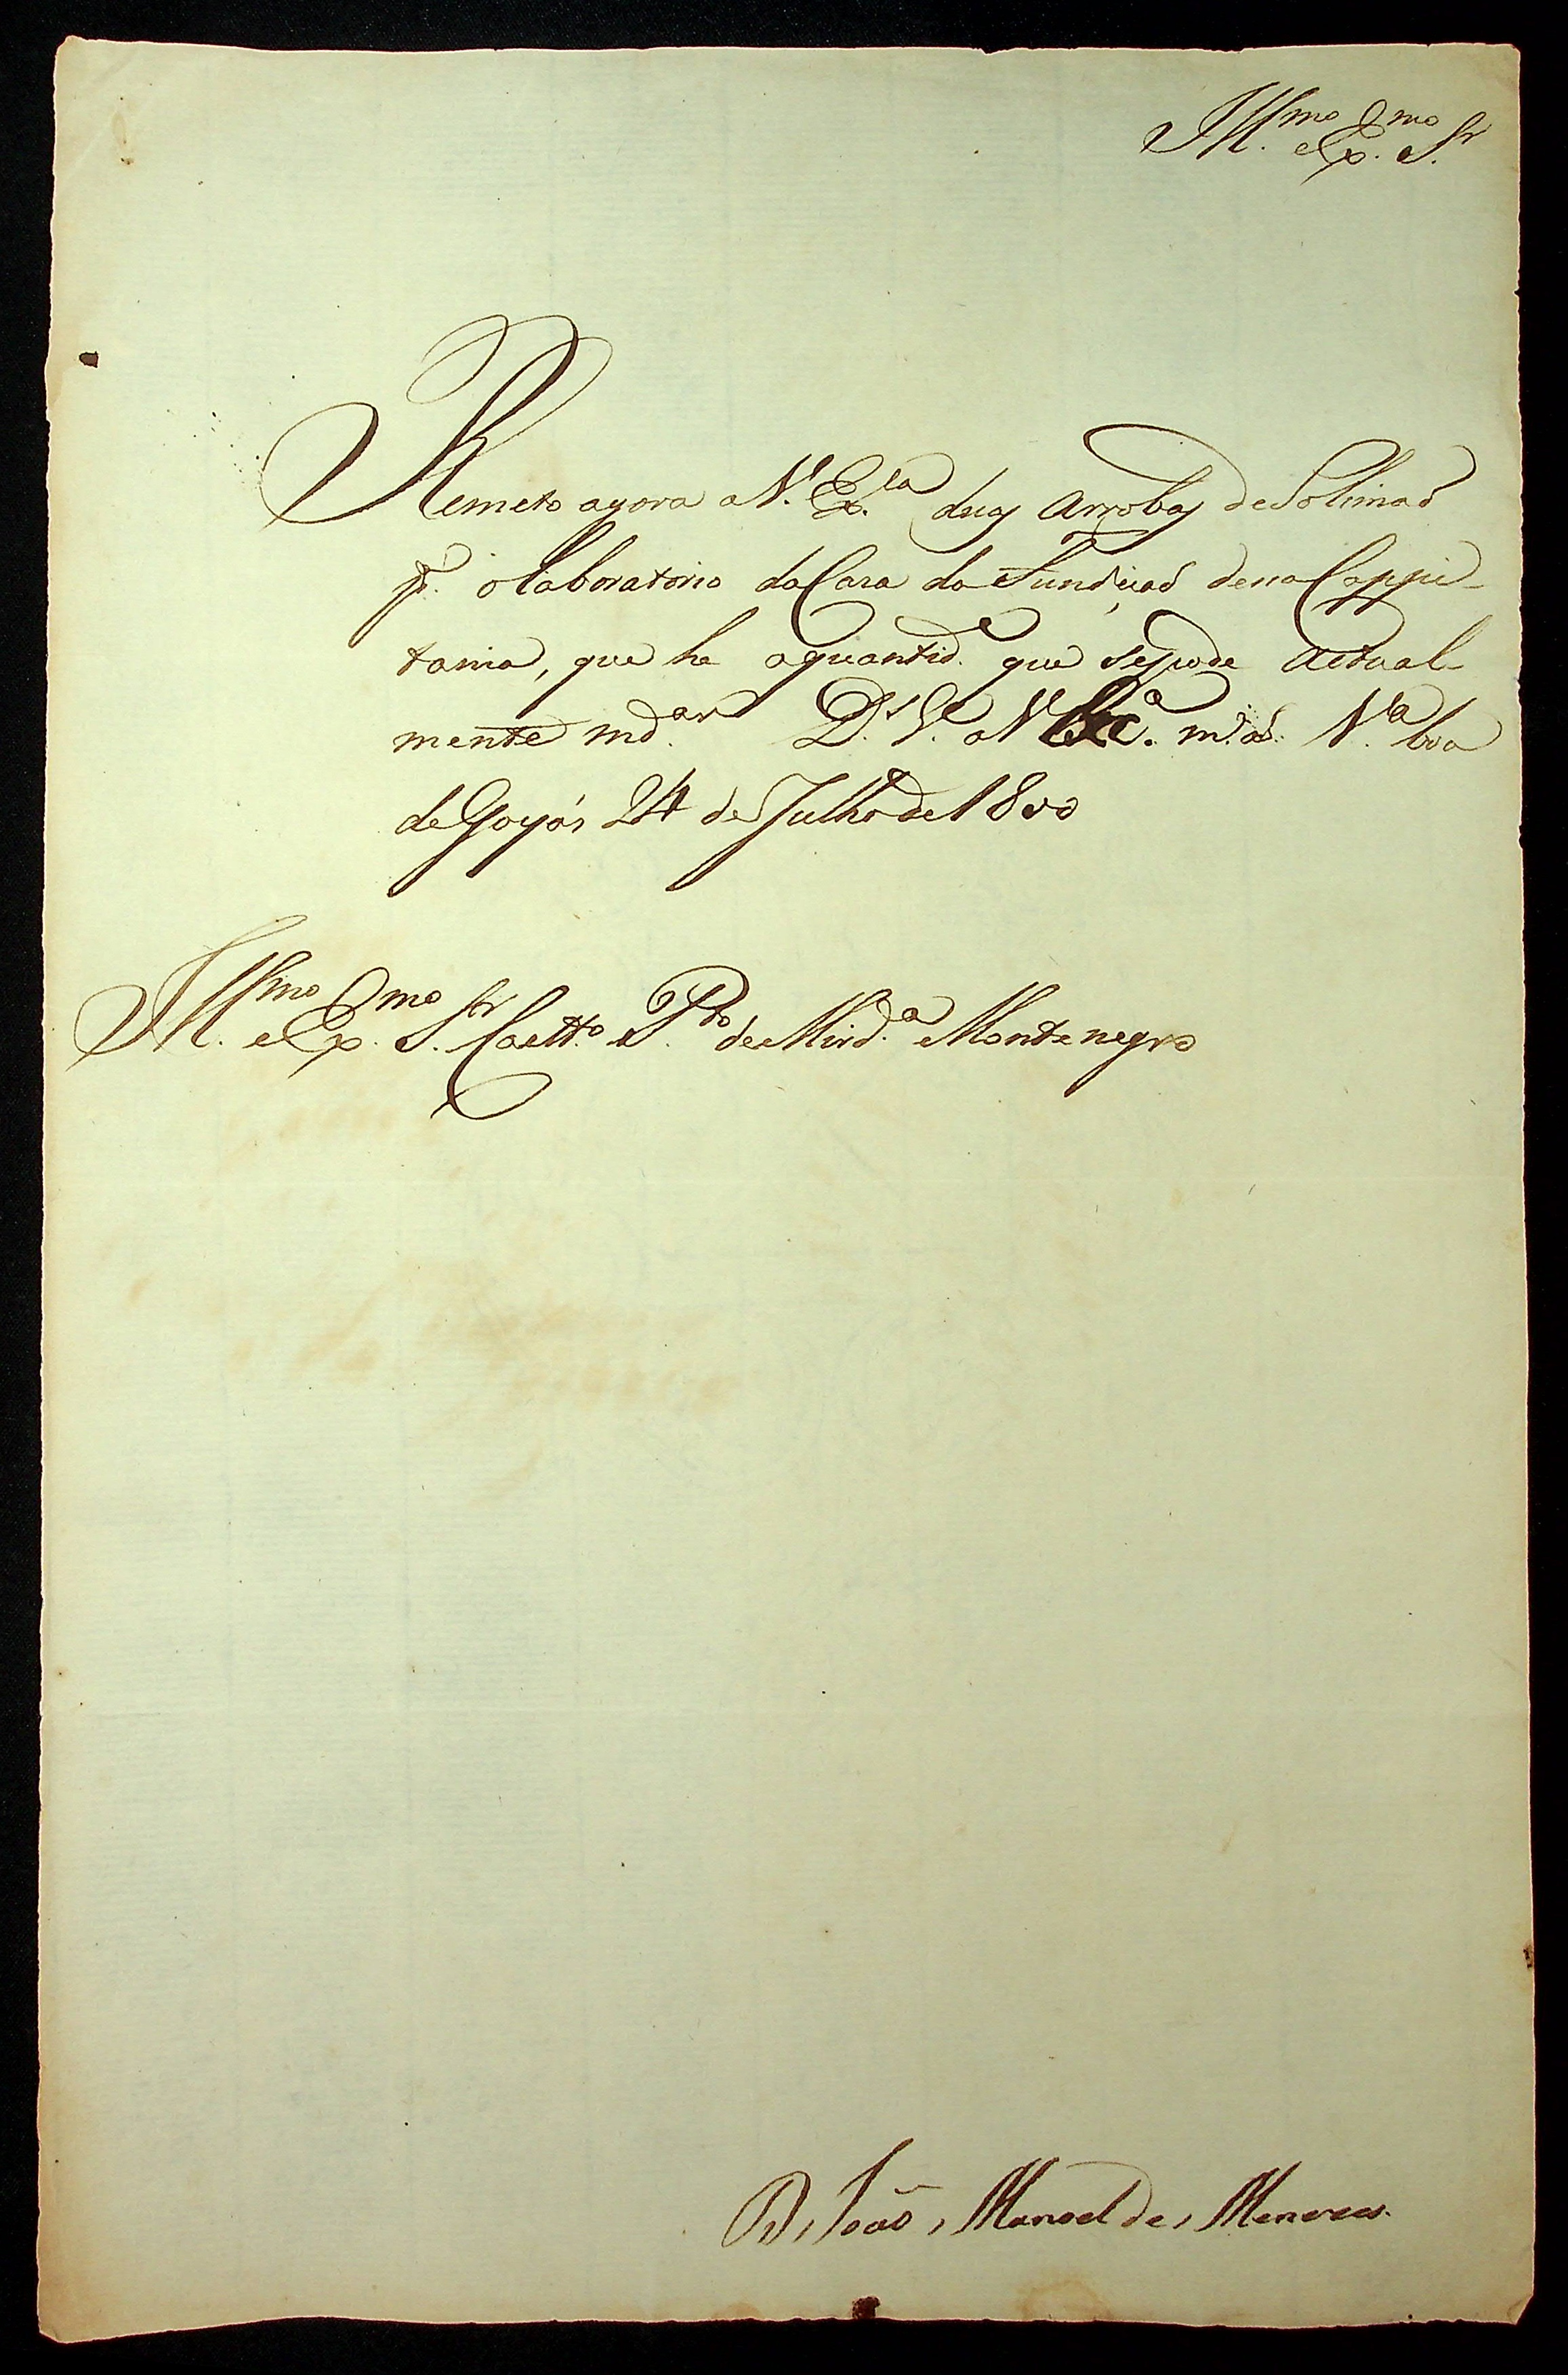 Ill.mo e Ex.mo S.r
Remeto agora a V. Ex.ca duas arrobas de Solimaõ
p.a o laboratorio da Casa da Fundiçaõ dessa Cappi-
tania, que he a quantid.e que se pode actual-
mente md.ar D.s G.e a V Ex.a m.s a.s V.a boa
de Goyás 24 de Julho de 1800
Ill.mo e Ex.mo S.r Caett.o P.to de Mird.a Montenegro
D. Joaõ Manoel de Menezes.